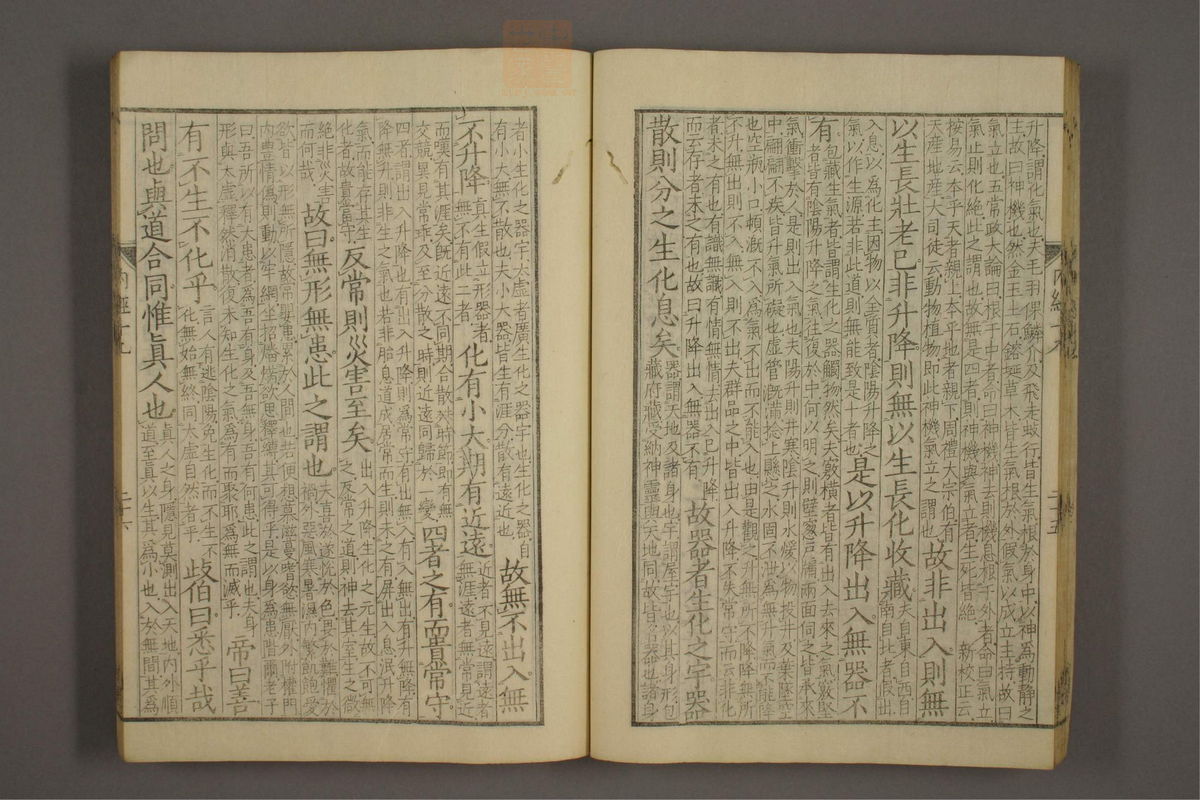 升降謂化氣也夫毛羽倮鱗介及飛走蚑行皆生氣根於身中以神爲動靜之
主故曰神機也然金玉土石鎔埏草木皆生氣根於外假氣以成立主持故曰
氣立也五常政大論曰根于中者命曰神機神去則機息根于外者命曰氣立
氣止則化絶此之謂也故無是四者則神機與氣立者生死皆絶 新校正云
按易云本乎天者親上本乎地者親下周禮大宗伯有
天産地産大司徒云動物植物即此神機氣立之謂也
故非出入則無
以生長壯老已非升降則無以生長化收藏
夫自東自西自
南自北者假出
入息以爲化主因物以全質者陰陽升降之
氣以作生源若非此道則無能致是十者也
是以升降出入無器不
有
包藏生氣者皆謂生化之器觸物然矣夫竅橫者皆有出入去來之氣竅堅
者皆有陰陽升降之氣往復於中何以明之則壁窻戶牖兩面伺之皆承來
氣衝擊於人是則出入氣也夫陽升則井寒陰升則水煖以物投井及葉墜空
中翩翩不疾皆升氣所礙也虛管溉滿捻上懸之水固不泄爲無升氣而不能降
也空瓶小口頓溉不入爲氣不出而不能入也由是觀之升無所不降降無所
不升無出則不入無入則不出夫群品之中皆出入升降不失常守而云非化
者未之有也有識無識有情無情去出入已升降
而云存者未之有也故曰升降出入無器不有
故器者生化之宇器
散則分之生化息矣
器謂天地及諸身也宇謂屋宇也以其身形包
藏府藏受納神靈與天地同故皆名器也諸身
者小生化之器宇太虛者廣生化之器宇也生化之器自
有小大無不散也夫小大器皆生有涯分散有遠近也
故無不出入無
不升降
真生假立形器者
無不有此二者
化有小大期有近遠
近者不見遠謂遠者
無涯遠者無常見近
而嘆有其涯矣旣近遠不同期合散殊時節即有無
交競異見常乖及至分散之時則近遠同歸於一變
四者之有而貴常守
四者謂出入升降也有出入升降則爲常守有出無入有入無出有升無降有
降無升則非生之氣也若非胎息道成居常而生則未之有屏出入息泯升降
氣而能存其生
化者故貴常守
反常則災害至矣
出入升降生化之元生故不可無
之反常之道則神去其室生之微
絶非災害
而何哉
故曰無形無患此之謂也
夫喜於遂悅於色畏於難懼於
禍外惡風寒暑濕內繁飢飽愛
欲皆以形無所隱故常嬰患累於人間也若便想慕滋蔓嗜慾無厭外附權門
內豐情僞則動以牢網坐招燔焫欲思釋縛其可得乎是以身爲患階爾老子
曰吾所以有大患者爲吾有身及吾無身吾有何患此之謂也夫身
形與太虛釋然消散復未知生化之氣爲有而聚耶爲無而滅乎
帝曰善
有不生不化乎
言人有逃陰陽免生化而不生不
化無始無終同太虛自然者乎
歧伯曰悉乎哉
問也與道合同惟眞人也
眞人之身隱見莫測出入天地內外順
道至眞以生其爲小也入於無間其爲
內經十九
二十五
內經十九
二十六